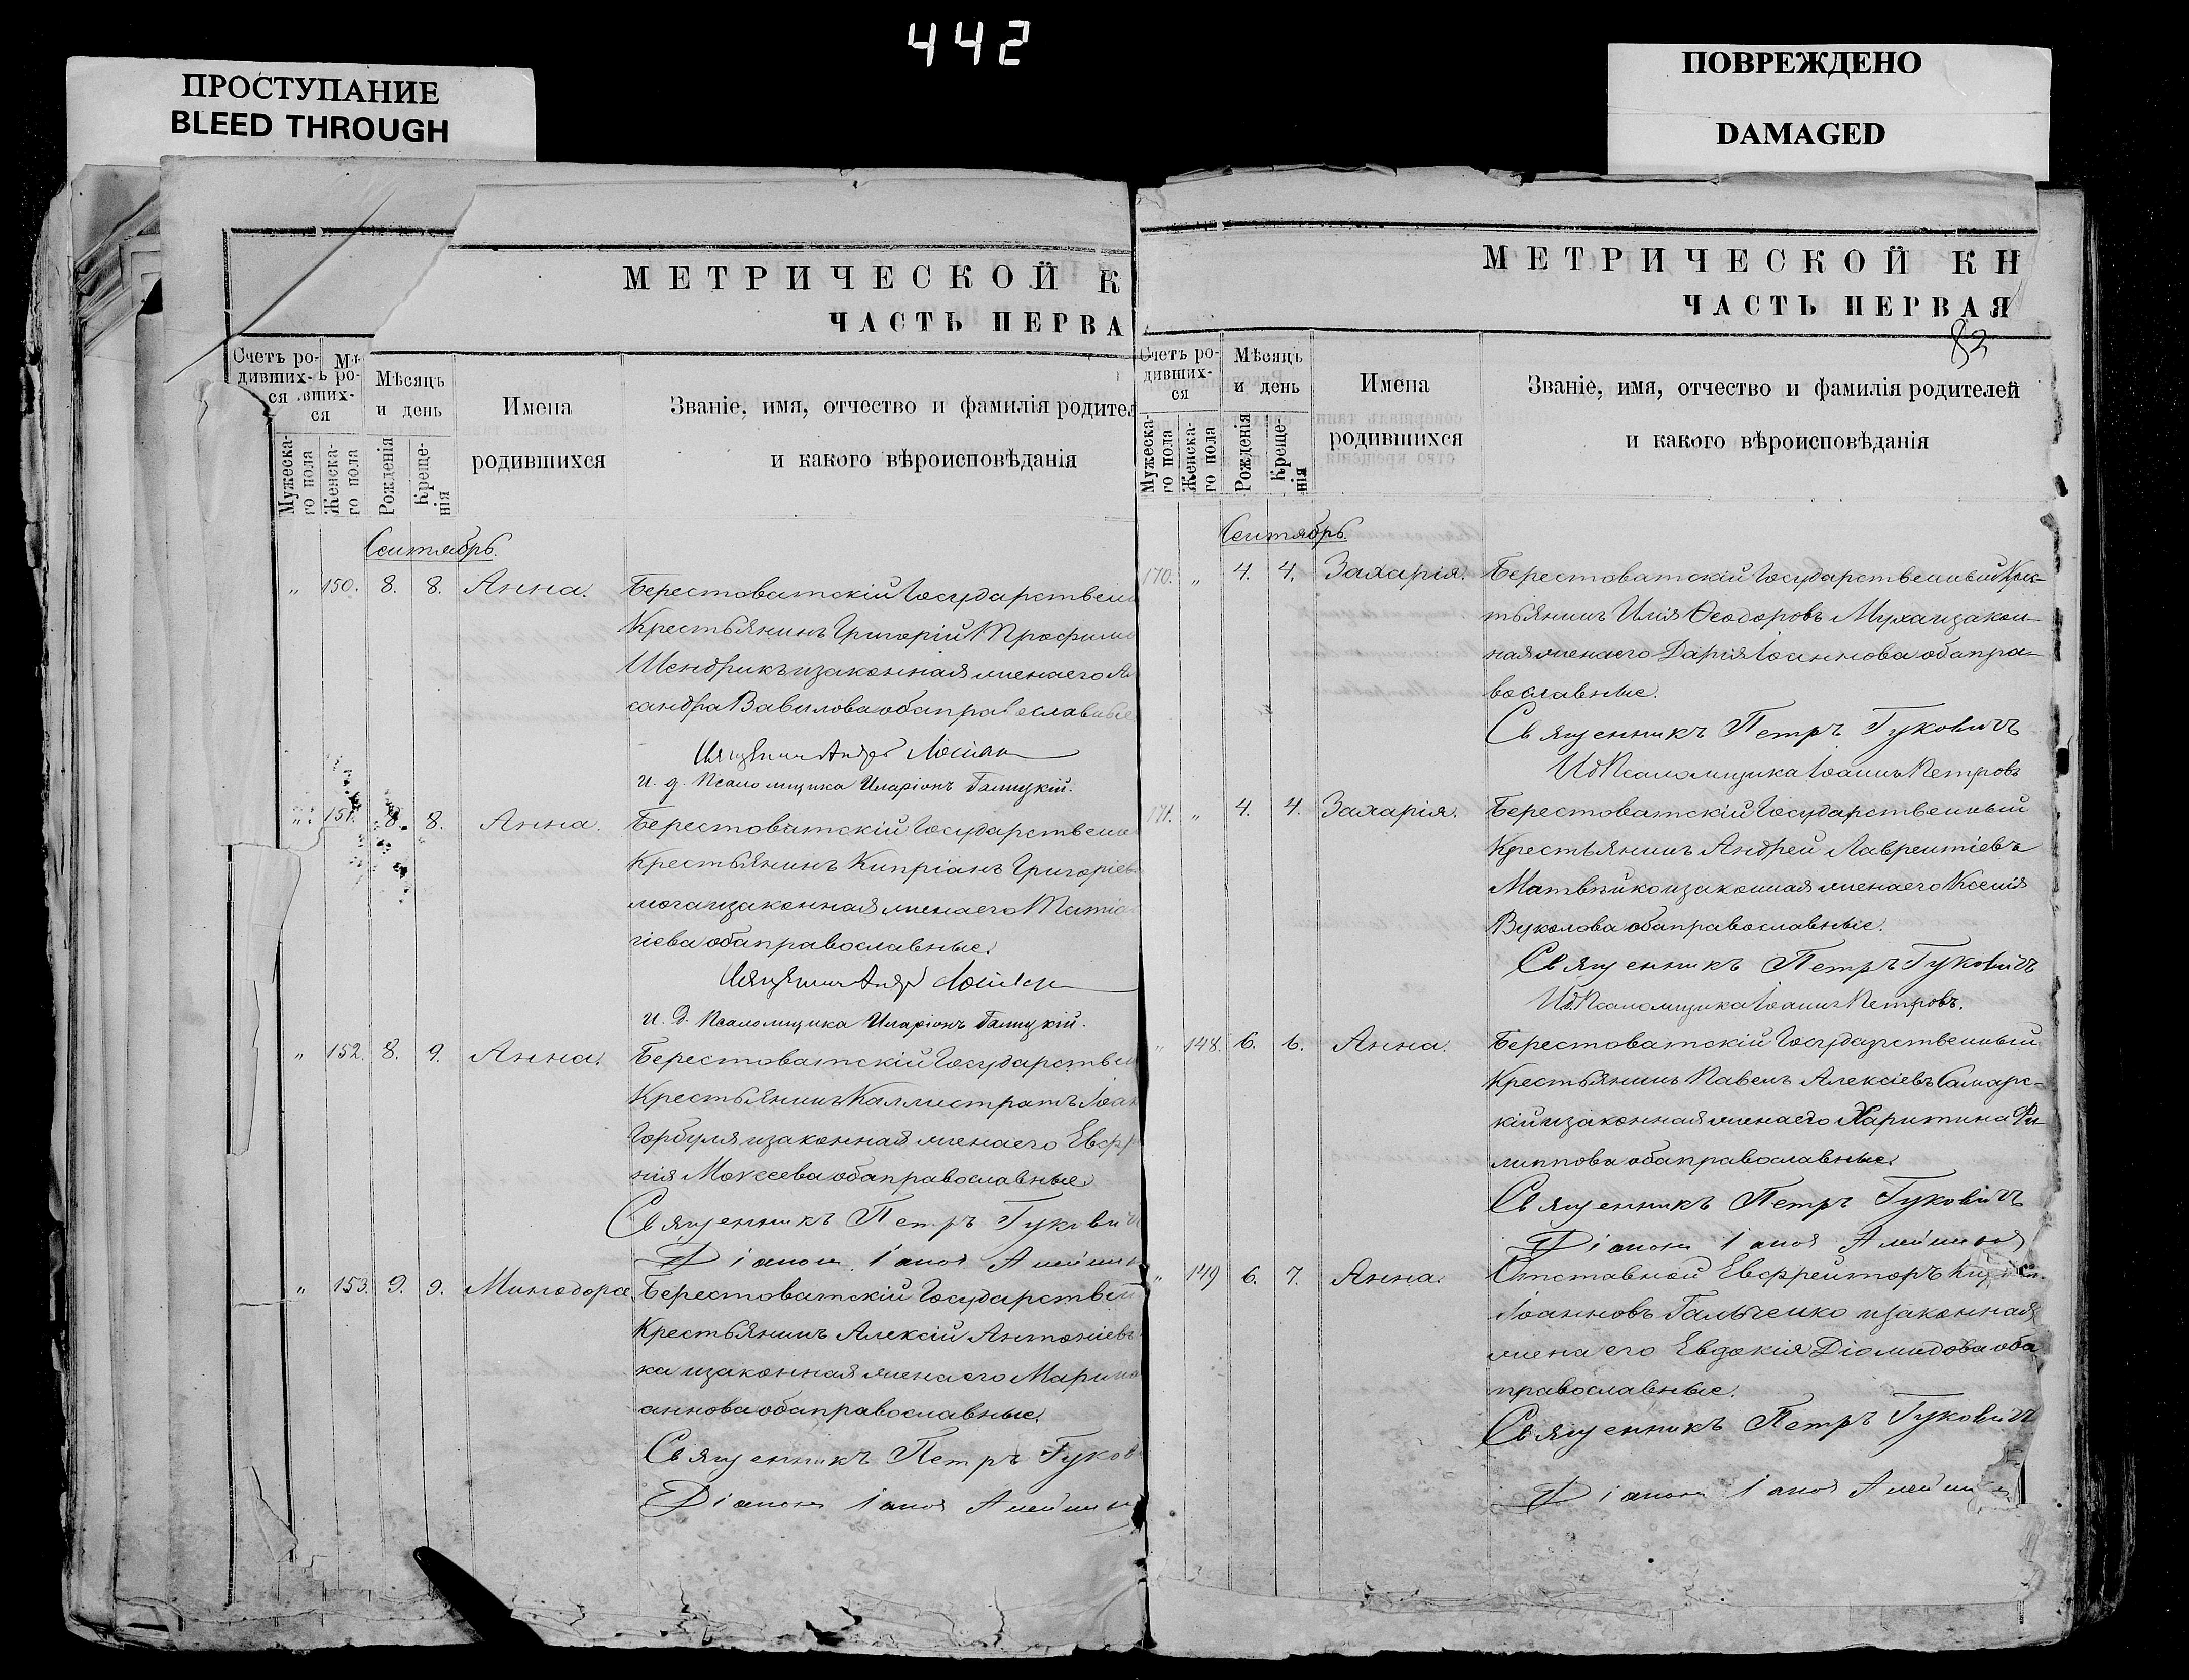 442
ПРОСТУПАНИЕ
BLEED THROUGH
ПОВРЕЖДЕНО
DAMAGED
МЕТРИЧЕСКОЙ К
ЧАСТЬ ПЕРВА
Счетъ ро-
дивших-
ся
Мѣсяцъ
и день
Имена
родившихся
Званіе, имя, отчество и фамилія родител
и какого вѣроисповѣданія
Мужеска-
го пола
Женска-
го пола
Рожденія
Креще-
нія
Сентябрь.
„ 150. 8. 8. Анна. Берестоватскій Государствен
Крестьянинъ Григорій Трофимо
Шендрикъ и законная жена его Ле
сандра Вавилова оба православные
Священникъ Андр
и. д. Псаломщика Иларіонъ Галицкій.
„ 151. 8. 8. Анна. Берестоватскій Государствено
Крестьянинъ Кипріанъ Григоріев
мога и законная жена его Татіа
гіева оба православные.
Священникъ Андр
и. д. Псаломщика Иларіонъ Галицкій.
„ 152. 8. 9. Анна. Берестоватскій Государствен
Крестьянинъ Каллистратъ Іоан
Горбуля и законная жена его Евфр
нія Моисеева оба православные
Священникъ Петръ Гукови
Діаконъ Іаковъ
„ 153. 9. 9. Минодора. Берестоватскій Государствен
Крестьянинъ Алексій Антоніевъ
ка и законная жена его Марина
аннова оба православные.
Священникъ Петръ Гуков
Діаконъ Іаковъ
МЕТРИЧЕСКОЙ КН
ЧАСТЬ ПЕРВАЯ
83
Счетъ ро-
дивших-
ся
Мѣсяцъ
и день
Имена
родившихся
Званіе, имя, отчество и фамилія родителей
и какого вѣроисповѣданія
Мужеска-
го пола
Женска-
го пола
Рожденія
Креще-
нія
Сентябрь.
170. „ 4. 4. Захарія. Берестоватскій Государственный Крес-
тьянинъ Илія Ѳеодоровъ Муха и закон-
ная жена его Дарія Іоаннова оба пра-
вославные.
Священникъ Петръ Гуковичъ
Ид Псаломщика Іоаннъ Петровъ
171. „ 4. 4. Захарія. Берестоватскій Государственный
Крестьянинъ Андрей Лаврентіевъ
Матвѣйко и законная жена его Ксенія
Вуколова оба православные.
Священникъ Петръ Гуковичъ
Ид. Псаломщика Іоаннъ Петровъ.
„ 148. 6. 6. Анна. Берестоватскій Государственный
Крестьянинъ Павелъ Алексіевъ Самарс-
кій и законная жена его Харитина Фи-
липпова оба православные.
Священникъ Петръ Гуковичъ
Діаконъ Іаковъ
„ 149 6. 7. Анна. Отставной Евфрейторъ
Іоанновъ Гальченко и законная
жена его Евдокія Діомидова оба
православные.
Священникъ Петръ Гуковичъ
Діаконъ Іаковъ